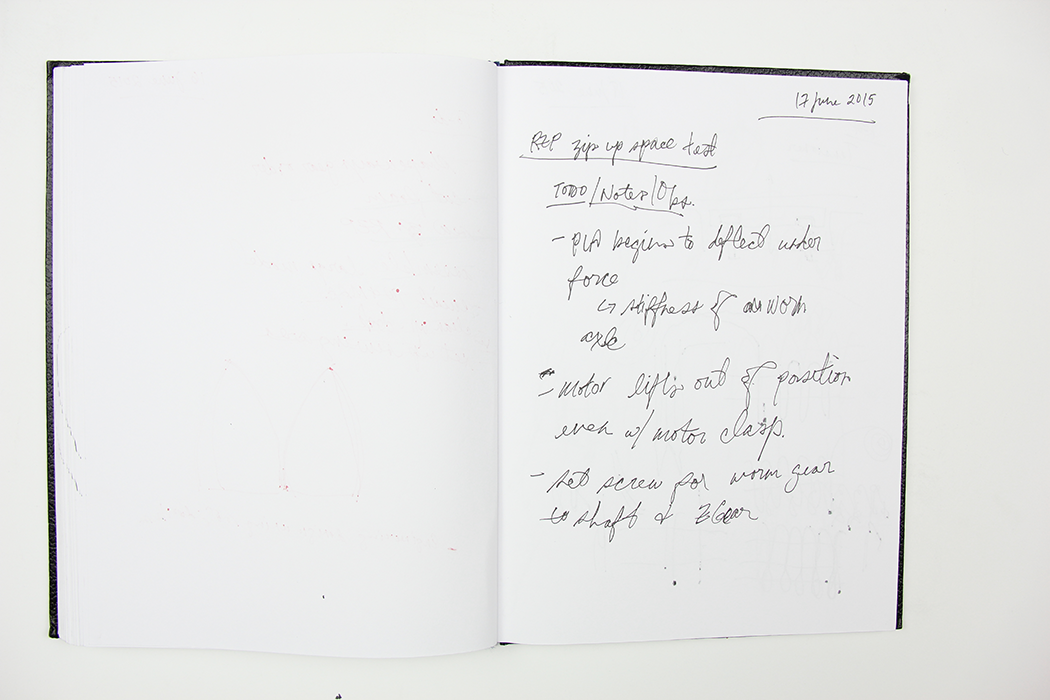 17 June 2015
zip up space test
TODO/Notes/Obs.
- PLA begins to deflect under
force
↳ stiffness of worm
axle
- motor lifts out of position
even w/ motor clasp.
- set screw for worm gear
to shaft & Gear